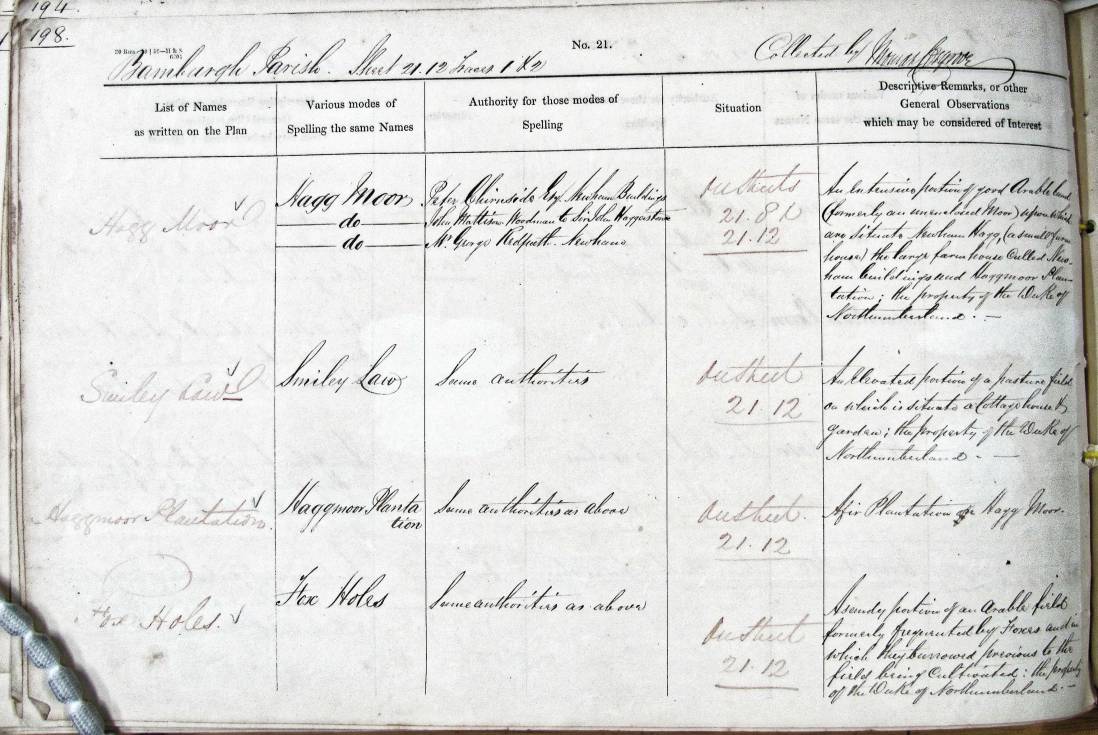 194.
198.
No. 21.
Bamburgh Parish. Sheet 21.12 Traces 1 & 2
Collected by Thomas Cosgrove
List of Names
as written on the Plan
Various modes of
Spelling the same Names
Authority for those modes of
Spelling
Situation
Descriptive Remarks, or other
General Observations
which may be considered of Interest
Hagg Moor
Hagg Moor
do
do
Peter Chirnside Esq. Newham Buildings
John Mattison Woodman to Sir John Haggerstone
Mr. George Redpath. Newham
On Sheets
21.8 &
21.12
An extensive portion of good Arable land
(formerly an unenclosed Moor) upon which
are situate Newham Hagg, (a small farm
house) the large farm house Called New-
ham buildings and Haggmoor Plan-
tation; the property of the Duke of
Northumberland. -
Smiley Law
Smiley Law
Same authorities
On Sheet
21.12
An Elevated portion of a pasture field
on which is situate a Cottage house &
garden; the property of the Duke of
Northumberland. -
Haggmoor Plantation.
Haggmoor Planta
tion
Same authorities as above
On Sheet.
21.12
A fir Plantation on Hagg Moor.
Fox Holes.
Fox Holes
Same authorities as above
On Sheet
21.12
A sandy portion of an Arable field
formerly frequented by Foxes and in
which they burrowed, precious to the
field being Cultivated: the property
of the Duke of Northumberland. -